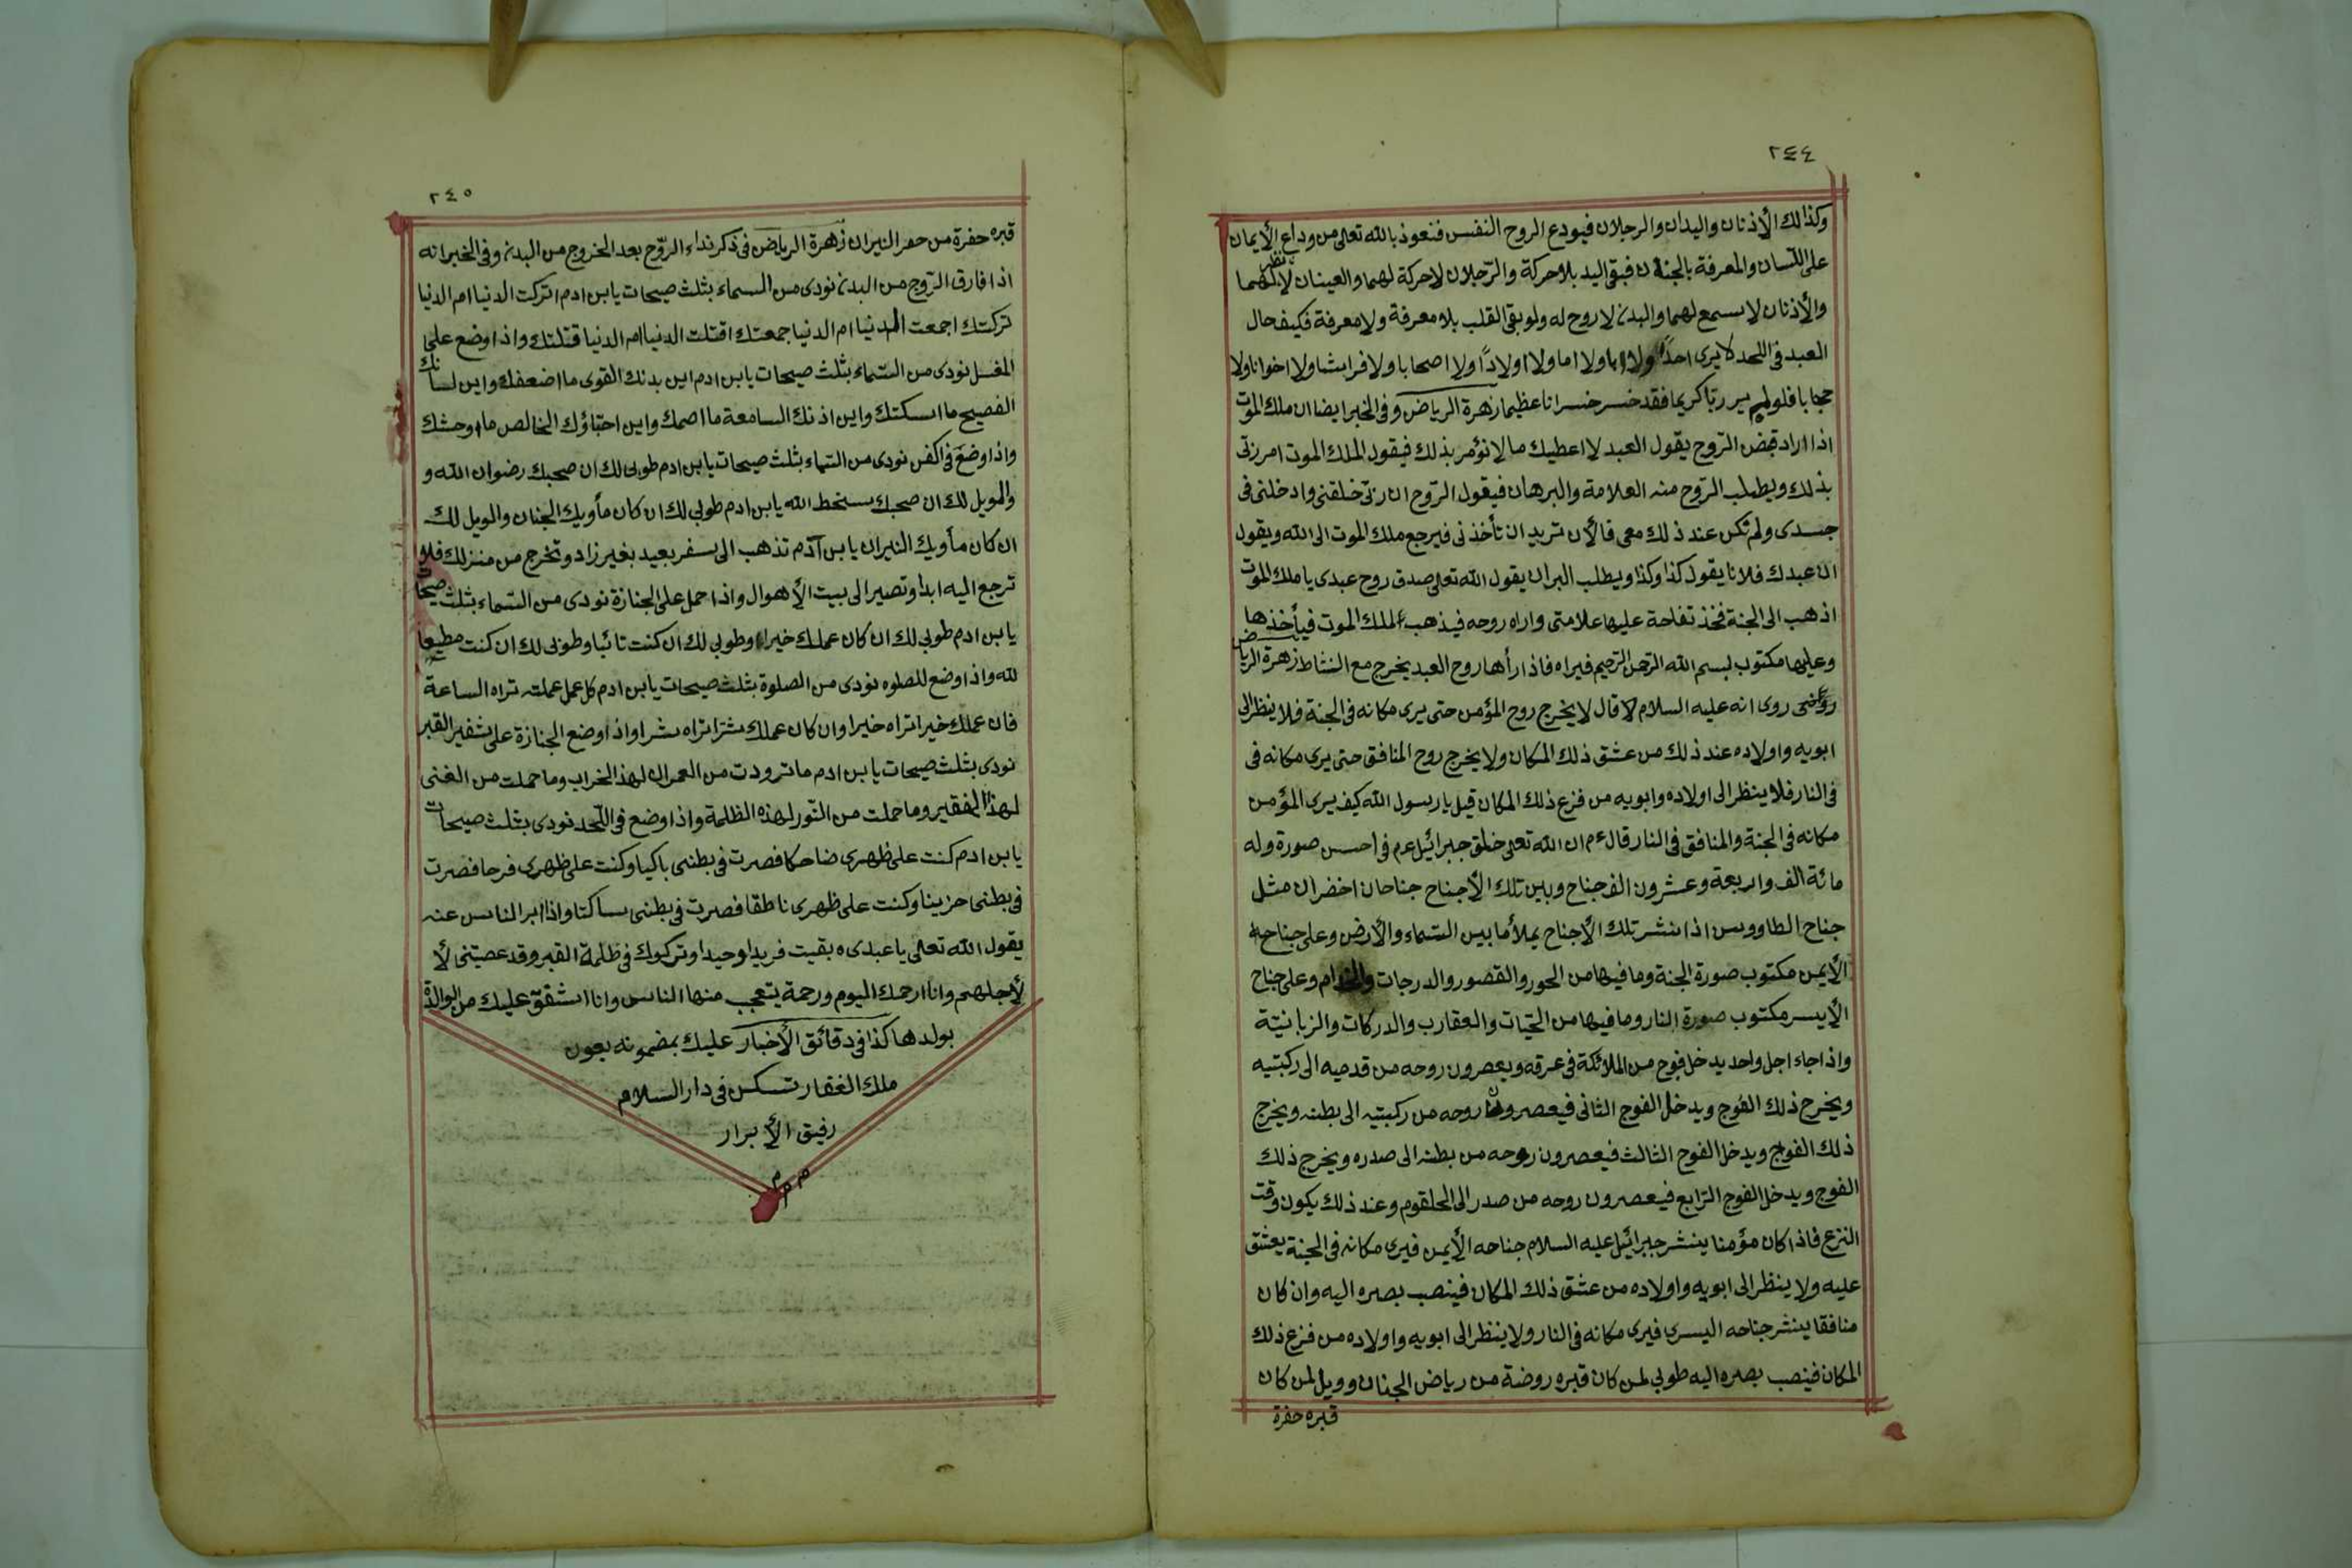 ٢٤٤
وكذالك الأذنان واليدان والرجلان فيودع الروح النفس فنعوذ بالله تعالى من وداع الأيمان
على اللسان والمعرفة بالجنان فبقى اليد بلا حركة والرّجلان لا حركة لهما والعينان لا نظر لهما
والأذنان لا يسمع لهما والبدن لا روح له ولو بقى القلب بلا معرفة ولا معرفة فكيف حال
العبد فى اللحد لا يرى احدًا ولا ابا ولا اما ولا اولادًا ولا اصحابا ولا فراشا ولا اخوانا ولا
حجابا فلو لم ير ربّا كريما فقد خسر خسرانا عظيما زهرة الرياض وفى الخبر ايضا ان ملك الموت
اذا اراد قبض الرّوح يقول العبد لا اعطيك ما لا نؤمر بذلك فيقول الملك الموت امر ربّى
بذلك ويطلب الرّوح منه العلامة والبرهان فيقول الرّوح ان ربّى خلقنى وادخلنى فى
جسدى ولم تكن عند ذلك معى فالأن تريد ان تأخذنى فيرجع ملك الموت الى الله ويقول
ان عبدك فلانا يقول كذا وكذا ويطلب البران يقول الله تعالى صدق روح عبدى يا ملك الموت
اذهب الى الجنة فخذ تفاحة عليها علامتى واراه روحه فيذهب الملك الموت فيأخذها
وعليها مكتوب لبسم الله الرّحمن الرّحيم فيراه فاذا رأها روح العبد يخرج مع النشاط زهرة الرياض
روى انه عليه السلام قال لا يخرج روح المؤمن حتى يرى مكانه فى الجنة فلا ينظر الى
ابويه واولاده عند ذلك من عشق ذلك المكان ولا يخرج روح المنافق حتى يرى مكانه فى
فى النار فلا ينظر الى اولاده وابويه من فزع ذلك المكان قيل يا رسول الله كيف يرى المؤمن
مكانه فى الجنة والمنافق فى النار قال ءم ان الله تعالى خلق جبرائيل عم فى احسن صورة وله
مائة الف واربعة وعشرون الف جناح وبين تلك الأجناح جناحان اخضران مثل
جناح الطاووس اذا نشر تلك الأجناح يملأ ما بين السّماء والأرض وعلى جناحه
الأيمن مكتوب صورة الجنة وما فيها من الحور والقصور والدرجات والخدام وعلى جناح
الأيسر مكتوب صورة النار وما فيها من الحيّات والعقارب والدركات والزبانيّة
واذا جاء اجل واحد يدخل فوج من الملائكة فى عرقه ويعصرون روحه من قدميه الى ركبتيه
ويخرج ذلك الفوج ويدخل الفوج الثانى فيعصرون روحه من ركبتيه الى بطنه ويخرج
ذلك الفوج ويدخل الفوج الثالث فيعصرون روحه من بطنه الى صدره ويخرج ذلك
الفوج ويدخل الفوج الرّابع فيعصرون روحه من صدر الى الحلقوم وعند ذلك يكون وقت
النزع فاذا كان مؤمنا ينشر جبرائيل عليه السلام جناحه الأيمن فيرى مكانه فى الجنة يعشق
عليه ولا ينظر الى ابويه واولاده من عشق ذلك المكان فينصب بصره اليه وان كان
منافقا ينشر جناحه اليسرى فيرى مكانه فى النار ولا ينظر الى ابويه واولاده من فزع ذلك
المكان فينصب بصره اليه طوبى لمن كان قبره روضة من رياض الجنان وويل لمن كان
قبره حفرة
٢٤٥
قبره حفرة من حفر النيران زهرة الرياض فى ذكر نداء الرّوح بعد الخروج من البدن وفى الخبر انه
اذا فارق الرّوح من البدن نودى من السماء بثلث صيحات يا بن ادم اتركت الدنيا ام الدنيا
تركتك اجمعت الدنيا ام الدنيا جمعتك اقتلت الدنيا ام الدنيا قتلتك واذا وضع على
المغسل نودى من السّماء بثلث صيحات يا بن ادم اين بدنك القوى ما اضعفك واين لسانك
الفصيح ما اسكتك واين اذنك السامعة ما اصمك واين احبّاؤك الخالص ما اوحشك
واذا وضع فى الكفن نودى من السّماء بثلث صيحات يا بن ادم طوبى لك ان صحبك رضوان الله و
والويل لك ان صحبك سخط الله يا بن ادم طوبى لك ان كان مأويك الجنان والويل لك
ان كان مأويك النيران يا بن آدم تذهب الى سفر بعيد بغير زاد وتخرج من منزلك فلا
ترجع اليه ابدا وتصير الى بيت الأهوال واذا حمل على الجنازة نودى من السّماء بثلث صيحات
يا بن ادم طوبى لك ان كان عملك خيرا وطوبى لك ان كنت تائبا وطوبى لك ان كنت مطيعا
لله واذا وضع للصلوه نودى من الصلوة بثلث صيحات يا بن ادم كل عمل عملته تراه الساعة
فان عملك خيرا تراه خيرا وان كان عملك شرا تراه شرا واذا وضع الجنازة على شفير القبر
نودى بثلث صيحات يا بن ادم ما تزودت من العمران لهذا الخراب وما حملت من الغنى
لهذا الفقير وما حملت من النّور لهذه الظلمة واذا وضع فى اللّحد نودى بثلث صيحات
يا بن ادم كنت على ظهرى ضاحكا فصرت فى بطنى باكيا وكنت على ظهرى فرحا فصرت
فى بطنى حزينا وكنت على ظهرى ناطقا فصرت فى بطنى ساكتا واذا ادبر الناس عنه
يقول الله تعالى يا عبدى ه بقيت فريدا وحيدا وتركوك فى ظلمة القبر وقد عصيتنى لأ
لأجلهم وانا ارحمك اليوم ورحمة يتعجب منها الناس وانا اشفق عليك من الوالدة
بولدها كذا فى دقائق الأخبار عليك بمضمونه بعون
ملك الغفار تسكن فى دار السلام
رفيق الأبرار
م م م